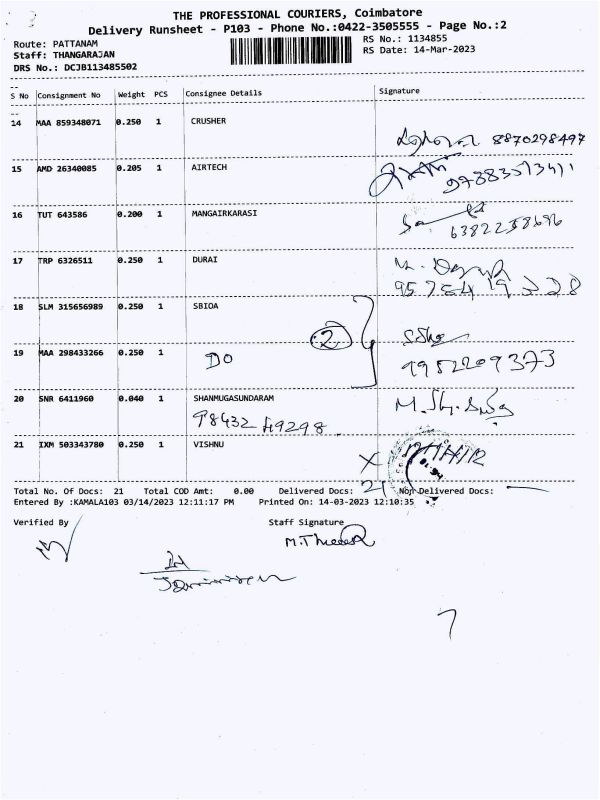 THE PROFESSIONAL COURIERS, Coimbatore
Delivery Runsheet - P103 - Phone No.:0422-3505555 - Page No.:2
Route: PATTANAM
RS No.: 1134855
Staff: THANGARAJAN
RS Date: 14-Mar-2023
DRS No.: DCJB113485502
S No Consignment No Weight PCS Consignee Details Signature
14 MAA 859348071 0.250 1 CRUSHER
8870298497
15 AMD 26340085 0.205 1 AIRTECH
16 TUT 643586 0.200 1 MANGAIRKARASI
6382258696
17 TRP 6326511 0.250 1 DURAI
18 SLM 315656989 0.250 1 SBIOA
2
19 MAA 298433266 0.250 1 DO
9952209373
20 SNR 6411960 0.040 1 SHANMUGASUNDARAM
98432 49298
21 IXM 503343780 0.250 1 VISHNU
X
Total No. Of Docs: 21 Total COD Amt: 0.00 Delivered Docs: 21 Non Delivered Docs: —
Entered By :KAMALA103 03/14/2023 12:11:17 PM Printed On: 14-03-2023 12:10:35
Verified By Staff Signature